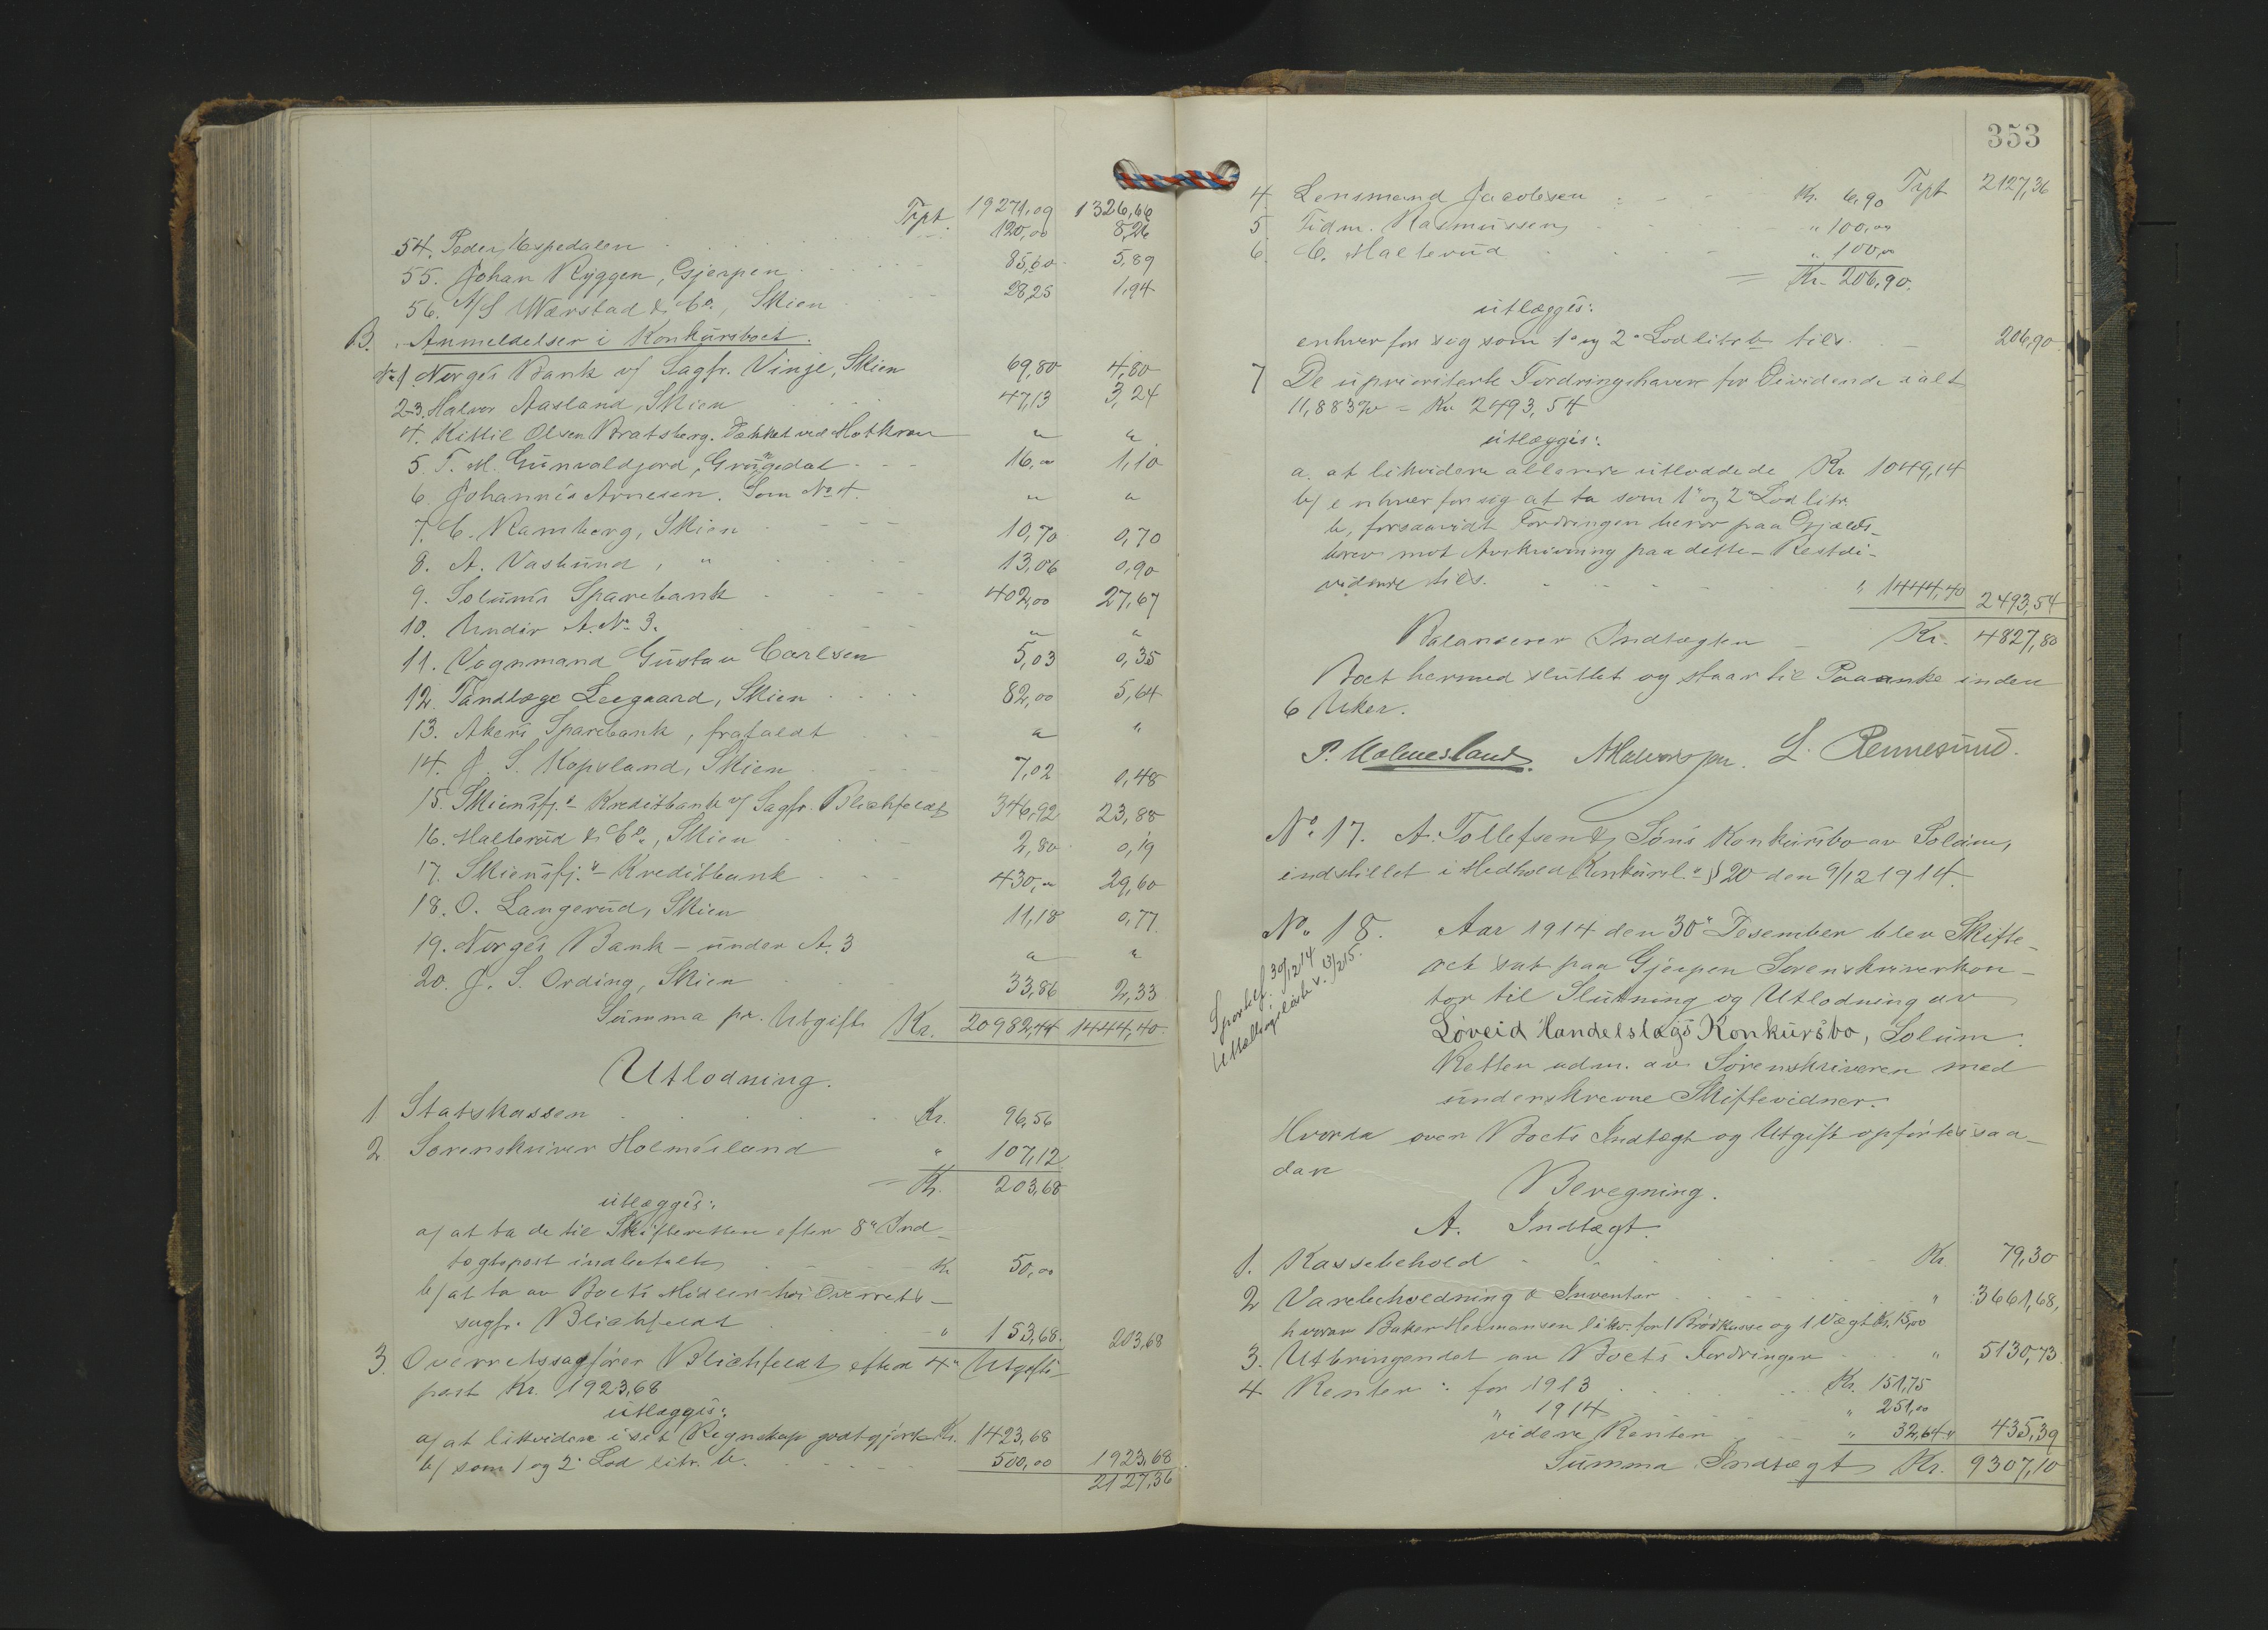 Trpt. 19271,09 1326,66
54. Peder Espedalen 120,00 8,26
55. Johan Ryggen, Gjerpen 85,60 5,89
56. A/S Wærstad & Co., Skien 28,25 1,94
B. Anmeldelser i Konkursboet.
No 1. Norges Bank v/ Sagfr. Vinje, Skien 69,80 4,80
2-3. Halvor Aasland, Skien 47,13 3,24
4. Kittil Olsen Bratsberg. Dækket ved Motkrav " "
5. T. M. Gunvaldjord, Grungedal 16,00 1,10
6. Johannes Arnesen. Som No 4. " "
7. C. Ramberg, Skien 10,70 0,70
8. A. Vaslund, " 13,06 0,90
9. Solums Sparebank 402,00 27,67
10. Under A. No 3. " "
11. Vognmand Gustav Carlsen 5,03 0,35
12. Tandlæge Leegaard, Skien 82,00 5,64
13. Akers Sparebank, frafaldt " "
14. J. S. Kopsland, Skien 7,02 0,48
15. Skiensfj.s Kreditbank v/ Sagfr. Blichfeldt 346,92 23,88
16. Halterud & Co., Skien 2,80 0,19
17. Skiensfj.s Kreditbank 430,00 29,60
18. O. Langerud, Skien 11,18 0,77
19. Norges Bank - under A. 3 " "
20. J. S. Ording, Skien 33,86 2,33
Summa pr. Utgift Kr. 20982,44 1444,40
Utlodning.
1 Statskassen Kr. 96,56
2 Sorenskriver Holmesland " 107,12
Kr. 203,68
utlægges:
a/ at ta de til Skifteretten efter 8de Ind-
tægtspost indbetalte Kr 50,00
b/ at ta av Boets Midler hos Overrets-
sagfr. Blichfeldt " 153,68 203,68
3. Overretssagfører Blichfeldt efter 4de Utgifts-
post Kr. 1923,68
utlægges:
a/ at likvidere i set Regnskap godtgjort Kr. 1423,68
b/ som 1 og 2. Lod litr. b. 500,00 1923,68
2127,36
353
Trpt 2127,36
4 Lensmand Jacobsen Kr. 6,90
5 Tidm. Rasmussen " 100,00
6. C. Halterud " 100,00
= Kr. 206,90.
utlægges:
enhver for sig som 1" og 2" Lod litr b tils. 206,90
7 De uprioriterte Fordringshavere for Dividende ialt
11,883% = Kr 2493,54
utlægges:
a. at likvidere allerede utloddede Kr 1049,14
b/ enhver for sig at ta som 1" og 2" Lod litr.
b, forsaavidt Fordringen beror paa Gjælds-
brev mot Avskrivning paa dette - Restdi-
vidende tils. " 1444,40 2493,54
Balanserer Indtægten Kr. 4827,80
Boet hermed sluttet og staar til Paaanke inden
6 Uker.
P. Holmesland. L. Rennesund.
No. 17. A. Tollefsen & Søns Konkursbo av Solum,
indstillet i Medhold Konkursl.s § 20 den 9/12 1914.
No. 18. Aar 1914 den 30" Desember blev Skifte-
ret sat paa Gjerpen Sorenskriverkon-
tor til Slutning og Utlodning av
Løveid Handelslags Konkursbo, Solum.
Retten adm. av Sorenskriveren med
underskrevne Skiftevidner.
Hvorda over Boets Indtægt og Utgift opførtes saa-
dan
Beregning.
A. Indtægt.
1. Kassebehold Kr. 79,30
2 Varebeholdning & Inventar " 3661,68,
hvorav Baker Hermansen likv. for 1 Brødkasse og 1 Vægt Kr. 15,00
3. Utbringendet av Boets Fordringer " 5130,73
4 Renter: for 1913 Kr. 151,75
" 1914 " 251,00
videre Renter " 32,64 435,39
Summa Indtægt Kr. 9307,10